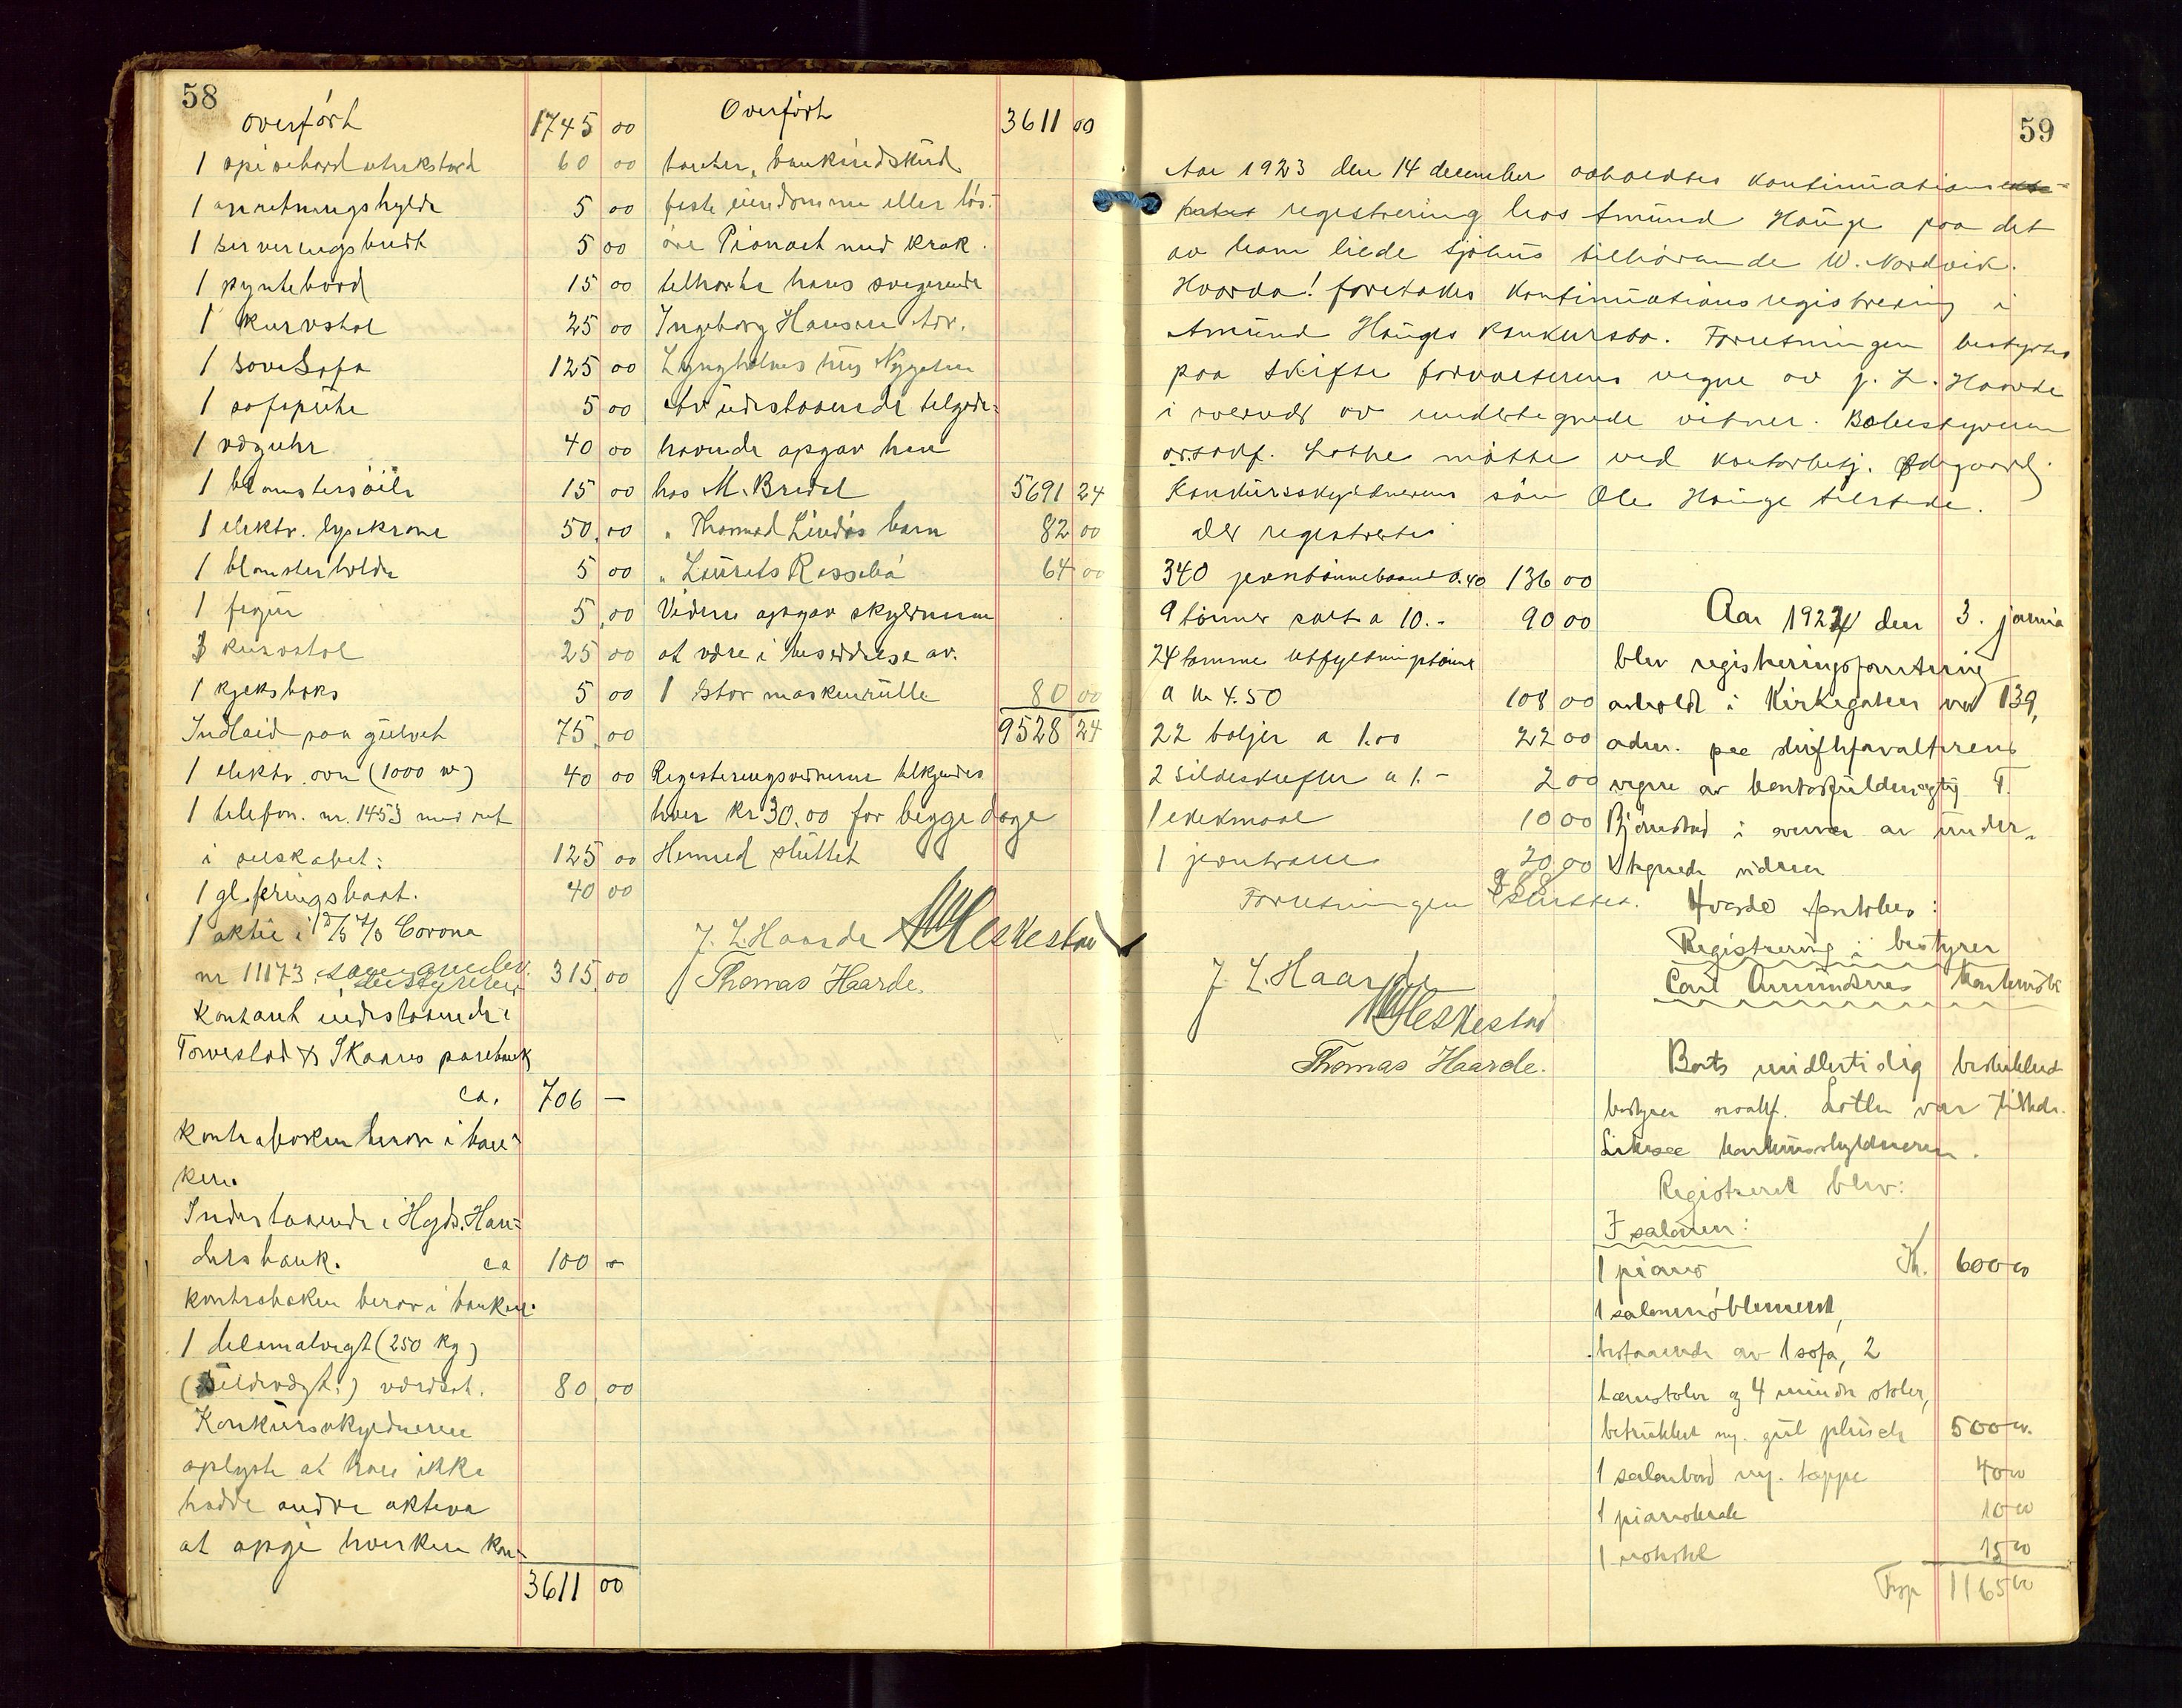 58
overført 1745 00
1 spisebord utrekstord 60 00
1 anretningshylde 5 00
1 serveringsbrett 5 00
1 pyntebord 15 00
1 kurvstol 25 00
1 SoveSofa 125 00
1 sofapüte 5 00
1 væguhr 40 00
1 blomstersöile 15 00
1 elektr. lysekrone 50,00
1 blomsterholder 5 00
1 figur 5,00
3 kurvstol 25 00
1 kjeksboks 5 00
Indlaid paa gulvet 75,00
1 elektr. ovn (1000 w) 40 00
1 telefon. nr. 1453 med ret
i selskabet: 125 00
1 gl. færingsbaat. 40 00
1 aktie i D/S A/S Corona
nr 11173. 315,00
Kontant indestaaende i
Torvestad & Skaares sparebank
ca. 706 —
kontraboken beror i ban-
ken.
Indestaaende i Hgds. Han-
delsbank. ca 100 -
kontraboken beror i banken.
1 decimalvegt (250 kg)
(Sildevægt:) værdsat. 80,00
Konkursskyldneren
oplyste at han ikke
hadde andre aktiva
at opgi hverken kon-
3611 00
Overført 3611 00
tanter, bankindskud
faste eiendomme eller løs-
öre Pianoet med krak.
tilhørte hans svigerinde
Ingeborg Hansen adr.
Lyngholms hus Nygaten
Av utestaaende tilgode-
havende opgav han
hos M. Bredal 5691 24
" Thormod Lindøs barn 82 00
" Laurits Rossebø 64 00
Videre opgav skyldneren
at være i besiddelse av.
1 stor maskinrulle 80 00
9528 24
Registeringsvidnerne tilkjendes
hver kr 30.00 for begge dage
Hermed sluttet
J. L. Haarde M Heskestad
Thomas Haarde.
59
Aar 1923 den 14 december avholdtes kontinuations
registrering hos Amund Hauge paa det
av ham leiede sjøhus tilhørende W. Nordvik.
Hvorda! foretokes kontinuationsregistrering i
Amund Hauges konkursbo. Forretningen bestyrtes
paa skifteforvalterens vegne av J. L. Haarde
i overvær av undertegnede vitner. Bobestyreren
o.r.sakf. Lothe møtte ved kontorbetj. Ødegaard.
Konkursskyldnerens søn Ole Hauge tilstede.
Der registrertes
340 jerntønnebaand 0.40 136 00
9 tønner salt a 10.- 90 00
24 tomme utfyldningstønner
a kr 4.50 108 00
22 baljer a 1.00 22 00
2 sildeskuffler a 1.- 2 00
1 ekekmaal 10 00
1 jerntralle 20,00
388
Forretningen sluttet.
J. L. Haarde
M Heskestad
Thomas Haarde.
Aar 1924 den 3. janua
blev registreringsforretning
avholdt i Kirkegaten nr 139,
adm. paa skifteforvalterens
vegne av kontorfuldmægtig T.
Bjørnstad i overvær av under-
tegnede vidner
Hvorda foretokes:
Registrering i bestyrer
Carl Amundsens konkursbo
Boets midlertidig beskikkede
bestyrer o.r.sakf. Lothe var tilstede.
Likesaa konkursskyldneren.
Registreret blev:
I salonen:
1 piano Kr. 600 00
1 salonmøblement,
bestaaende av 1 sofa, 2
lænstoler og 4 mindre stoler,
betrukket m. gul plüsch 500 00
1 salonbord m. teppe 40 00
1 pianokrak 10 00
1 rokstol 15 00
Trsp 1165 00